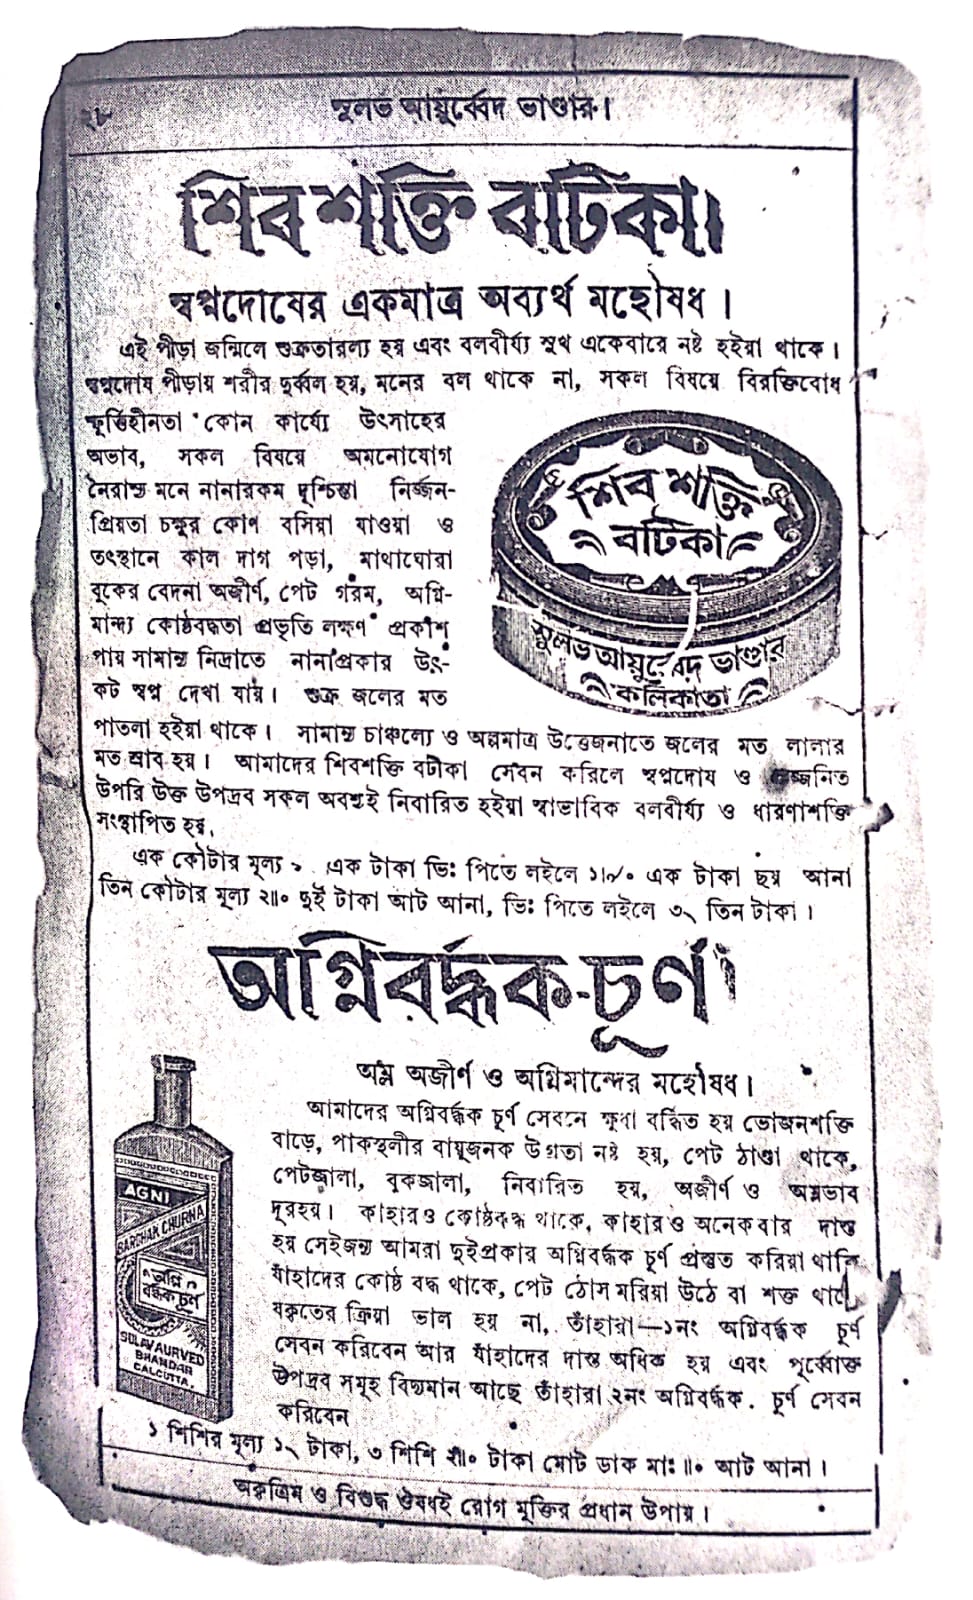 ২৮
সুলভ আয়ুর্ব্বেদ ভাণ্ডার।
শিব শক্তি বটিকা।
স্বপ্নদোষের একমাত্র অব্যর্থ মহৌষধ।
এই পীড়া জন্মিলে শুক্রতারল্য হয় এবং বলবীর্য্য সুখ একেবারে নষ্ট হইয়া থাকে।
স্বপ্নদোষ পীড়ায় শরীর দুর্ব্বল হয়, মনের বল থাকে না, সকল বিষয়ে বিরক্তিবোধ
স্ফূর্ত্তিহীনতা কোন কার্য্যে উৎসাহের
অভাব, সকল বিষয়ে অমনোযোগ
নৈরাশ্য মনে নানারকম দুশ্চিন্তা নির্জ্জন-
প্রিয়তা চক্ষুর কোণ বসিয়া যাওয়া ও
তৎস্থানে কাল দাগ পড়া, মাথাঘোরা
বুকের বেদনা অজীর্ণ, পেট গরম, অগ্নি-
মান্দ্য কোষ্ঠবদ্ধতা প্রভৃতি লক্ষণ প্রকাশ
পায় সামান্য নিদ্রাতে নানাপ্রকার উৎ-
কট স্বপ্ন দেখা যায়। শুক্র জলের মত
শিব শক্তি
বটিকা
সুলভ আয়ুর্ব্বেদ ভাণ্ডার
কলিকাতা
পাতলা হইয়া থাকে। সামান্য চাঞ্চল্যে ও অল্পমাত্র উত্তেজনাতে জলের মত লালার
মত স্রাব হয়। আমাদের শিবশক্তি বটীকা সেবন করিলে স্বপ্নদোষ ও
উপরি উক্ত উপদ্রব সকল অবশ্যই নিবারিত হইয়া স্বাভাবিক বলবীর্য্য ও ধারণাশক্তি
সংস্থাপিত হয়,
এক কৌটার মূল্য ১৲ এক টাকা ভিঃ পিতে লইলে ১।৵০ এক টাকা ছয় আনা
তিন কৌটার মূল্য ২॥০ দুই টাকা আট আনা, ভিঃ পিতে লইলে ৩৲ তিন টাকা।
অগ্নিবর্দ্ধক-চূর্ণ।
অম্ল অজীর্ণ ও অগ্নিমান্দের মহৌষধ।
আমাদের অগ্নিবর্দ্ধক চূর্ণ সেবনে ক্ষুধা বর্দ্ধিত হয় ভোজনশক্তি
বাড়ে, পাকস্থলীর বায়ুজনক উগ্রতা নষ্ট হয়, পেট ঠাণ্ডা থাকে,
পেটজ্বালা, বুকজ্বালা, নিবারিত হয়, অজীর্ণ ও অম্লভাব
দূরহয়। কাহারও কোষ্ঠবদ্ধ থাকে, কাহারও অনেকবার দাস্ত
হয় সেইজন্য আমরা দুইপ্রকার অগ্নিবর্দ্ধক চূর্ণ প্রস্তুত করিয়া থাকি
যাঁহাদের কোষ্ঠ বদ্ধ থাকে, পেট ঠোস মরিয়া উঠে বা শক্ত থাকে
যকৃতের ক্রিয়া ভাল হয় না, তাঁহারা—১নং অগ্নিবর্দ্ধক চূর্ণ
সেবন করিবেন আর যাঁহাদের দাস্ত অধিক হয় এবং পূর্ব্বোক্ত
উপদ্রব সমূহ বিদ্যমান আছে তাঁহারা ২নং অগ্নিবর্দ্ধক. চূর্ণ সেবন
করিবেন
AGNI
BARDHAK CHURNA
অগ্নি
বর্দ্ধক চূর্ণ
SULAV AURVED
BHANDAR
CALCUTTA.
১ শিশির মূল্য ১৲ টাকা, ৩ শিশি ২॥০ টাকা মোট ডাক মাঃ ॥০ আট আনা।
অকৃত্রিম ও বিশুদ্ধ ঔষধই রোগ মুক্তির প্রধান উপায়।